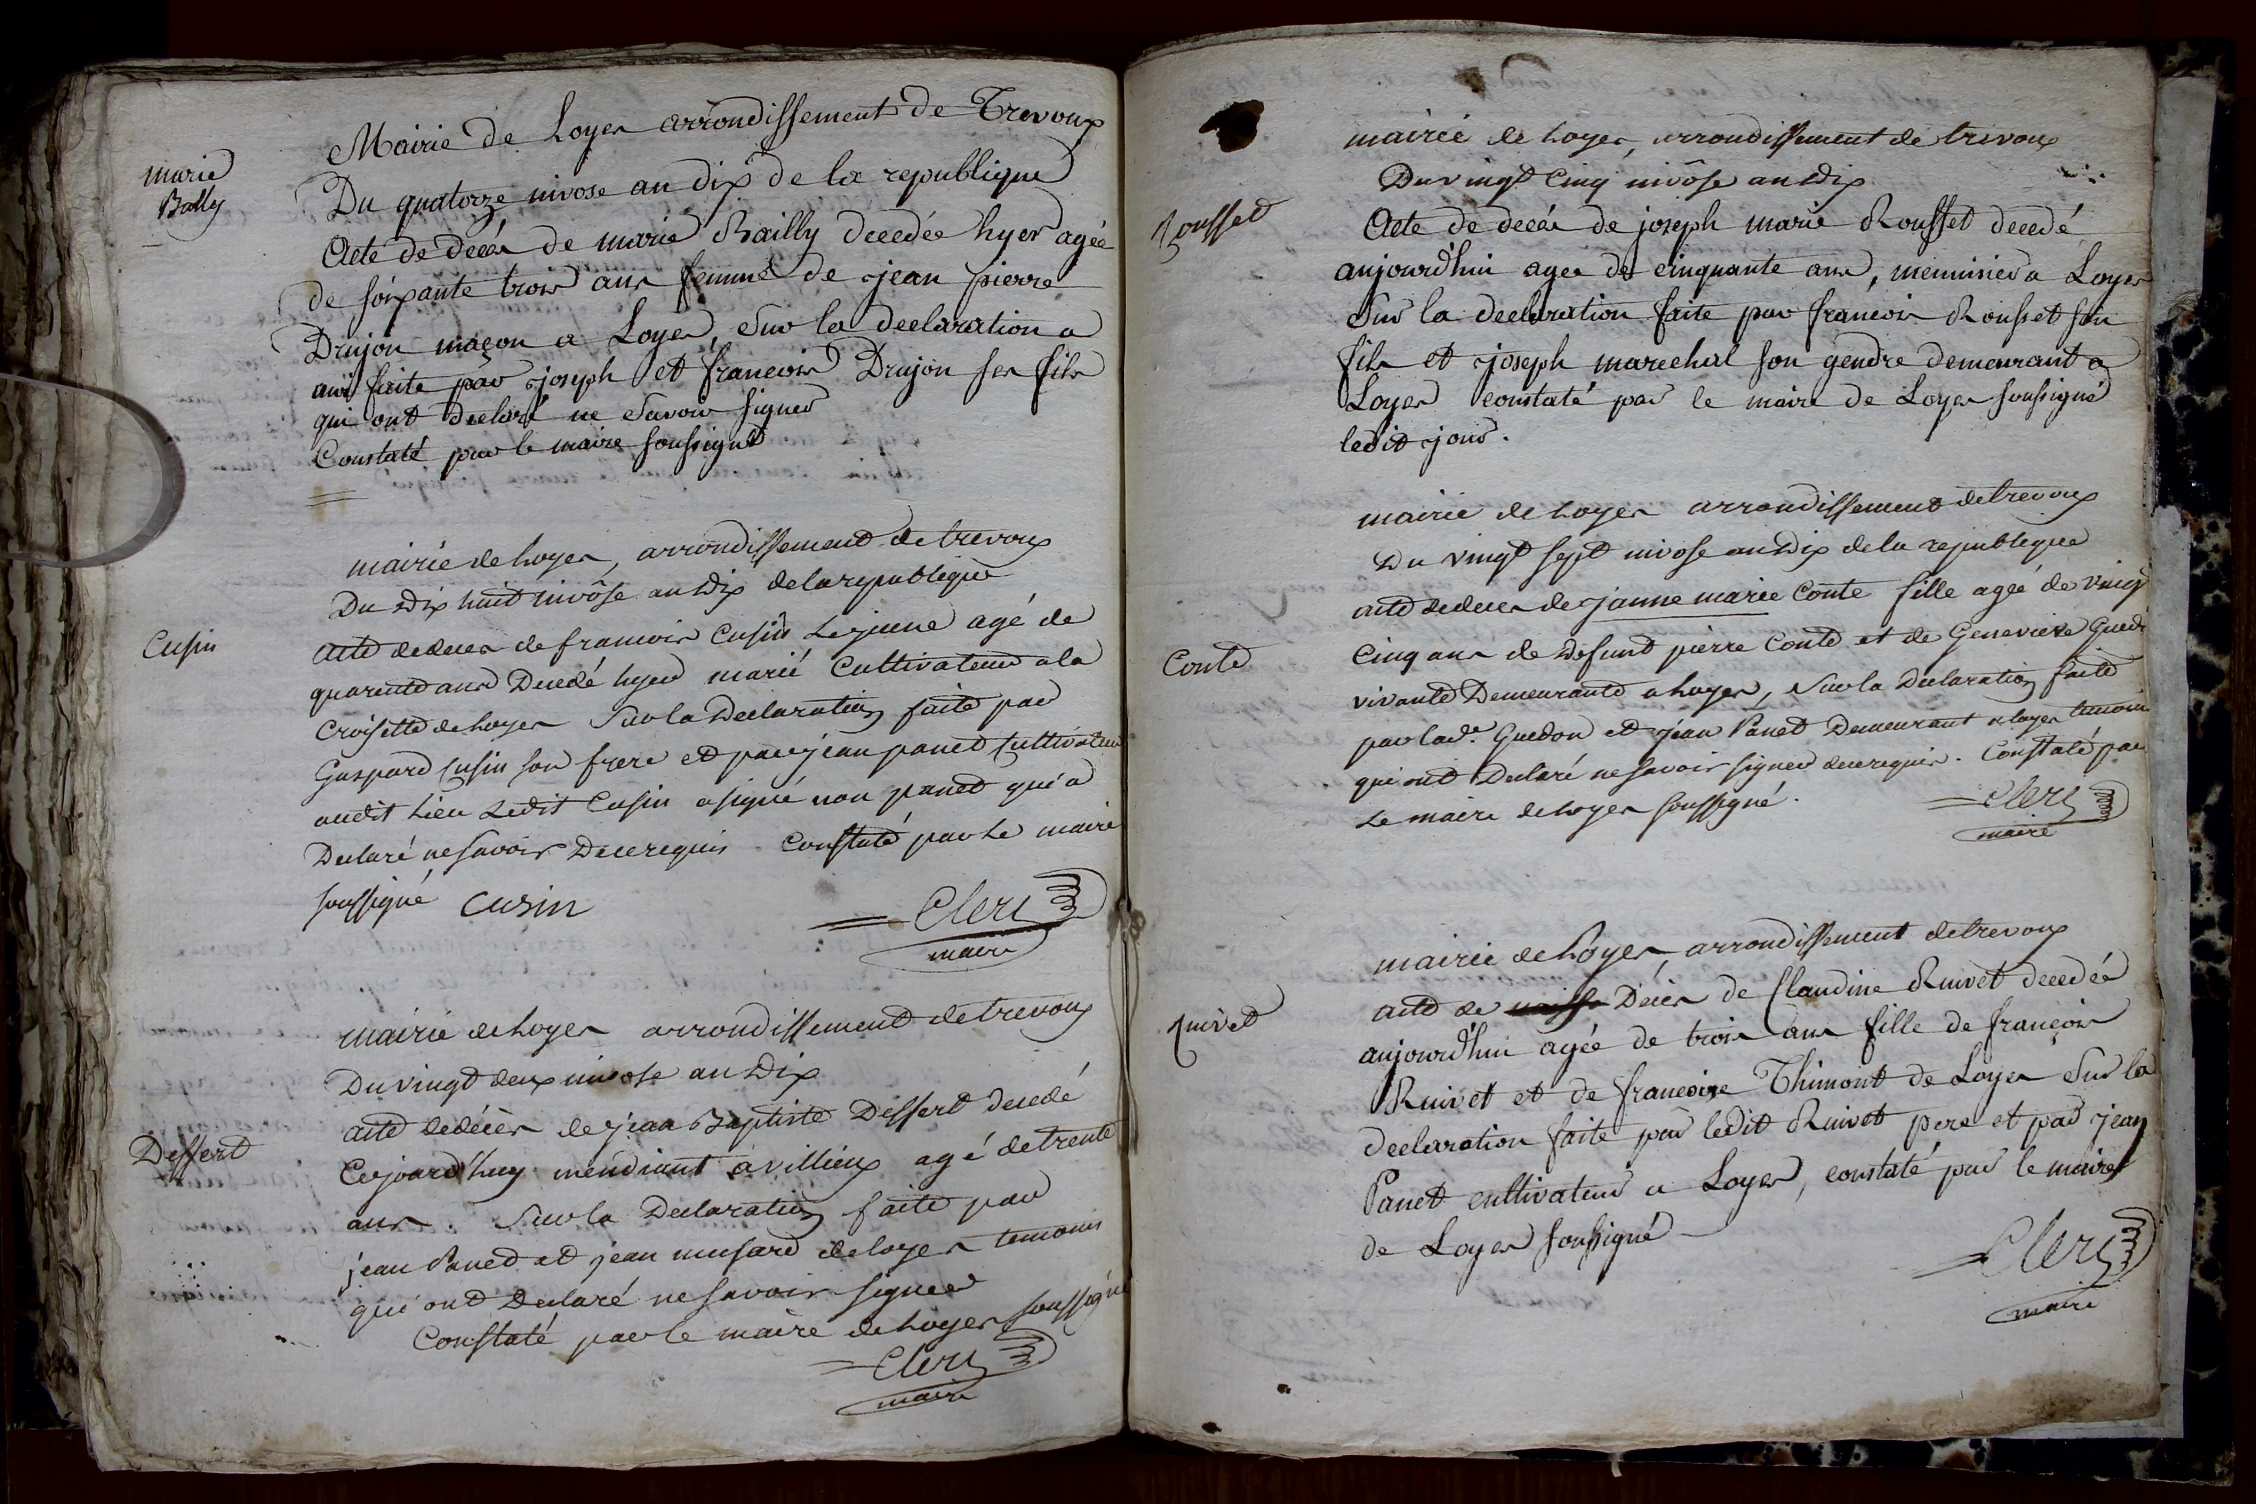 marie
Bally
Mairie de Loyes arrondissement de Trevoux
Du quatorze nivose an dix de la republique
Acte de decès de marie Bailly decedée hyer agée
de soixante trois ans femme de jean pierre
Drujon maçon a Loyes, Sur la declaration a
faite par joseph et francois Drujon ses fils
qui ont declaré ne Savoir signer
Constaté par le maire soussigné
Cusin
mairie de Loyes, arrondissement de trevoux
Du Dix huit nivôse an Dix de la republique
acte de deces de francois Cusin Le jeune agé de
quarente ans Decedé hyer marié Cultivateur a la
Croisette de Loyes Sur la Declaration faite par
Gaspard Cusin son frere et par jean panet Cultivateur
audit Lieu Ledit Cusin a signé non panet qui a
Declaré ne savoir De ce requis. Constaté par Le maire
soussigné Cusin
Clerc
maire
Dessert
mairie de Loyes arrondissement de trevoux
Du vingt deux nivose an Dix
acte de décès de jean Baptiste Dessert decedé
Cejourd'huy mendiant a villieux agé de trente
ans. Sur la Declaration faite par
jean Panet et jean musard de loyes temoins
qui ont Declaré ne savoir signer
Constaté par le maire de Loyes soussigné
Clerc
maire
Rousset
mairie de Loyes, arrondissement de trevoux
Du vingt Cinq nivôse an Dix
Acte de decés de joseph marie Rousset decedé
aujourd'hui agé de cinquante ans, menuisier a Loyes
Sur la declaration faite par francois Rousset son
fils et joseph marechal son gendre demeurant a
Loyes constaté par le maire de Loyes soussigné
ledit jour.
Conte
mairie de Loyes arrondissement de trevoux
Du vingt sept nivose an Dix de la republique
acte de deces de janne marie Conte fille agée de vingt
Cinq ans de Defunt pierre Conte et de Genevieve
vivante Demeurante a Loyes, Sur la Declaration faite
par lad.e Guedon et jean Panet Demeurant a loyes temoins
qui ont Declaré ne savoir signer de ce requis. Constaté par
Le maire de Loyes soussigné.
Clerc
maire
Ruivet
mairie de Loyes arrondissement de trevoux
acte de naiss Décés de Claudine Ruivet decedée
aujourd'hui agée de trois ans fille de françois
Ruivet et de francoise Thimont de Loyes Sur la
declaration faite par ledit Ruivet pere et par jean
Panet cultivateur a Loyes, constaté par le maire
de Loyes soussigné
Clerc
maire